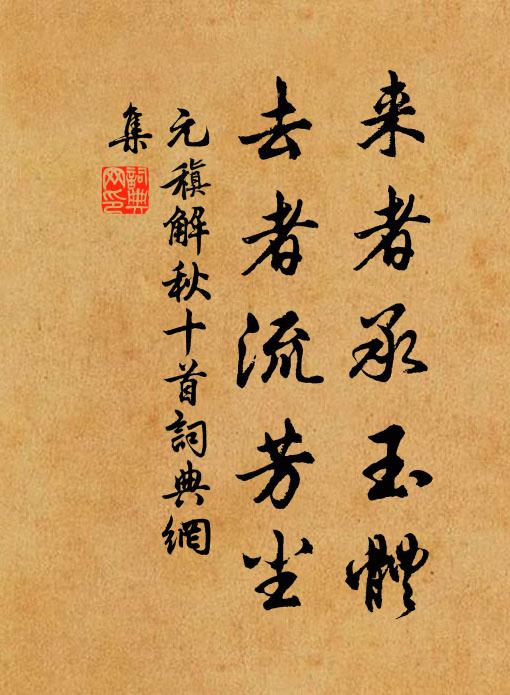 来者承玉體
去者流芳尘
元稹解秋十首詞典網
集
詞典
网印